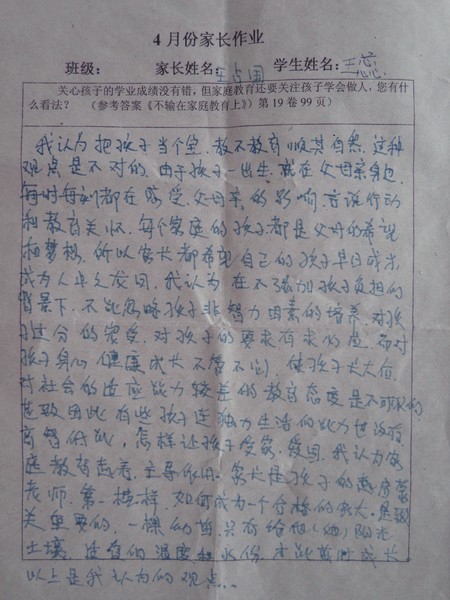 4月份家长作业
班级： 家长姓名：王占国 学生姓名：王芯
关心孩子的学业成绩没有错，但家庭教育还要关注孩子学会做人，您有什
么看法？ （参考答案《不输在家庭教育上》）第19卷99页）
我认为把孩子当个宝，教不教育顺其自然，这种
观点是不对的。由于孩子一出生，就在父母亲身边，
每时每刻都在感受父母亲的影响，言说行动
和教育关怀。每个家庭的孩子都是父母的希望
和梦想，所以家长都希望自己的孩子早日成才，
成为人中之龙凤，我认为在不强加孩子负担的
背景下，不能忽略孩子非智力因素的培养，对孩
子过分的宠爱，对孩子的要求有求必应，而对
孩子身心健康成长不管不问，使孩子长大后
对社会的适应能力较差的教育态度是不可取的
因此有些孩子连独力生活的能力也没有
怎样让孩子爱家、爱国，我认为家
庭教育起着主导作用。家长是孩子的启蒙
老师，第一榜样，如何成为一个合格的家长是至
关重要的，一棵幼苗，只有给他（她）阳光
土壤，适宜的温度和水份，才能茁壮成长
以上是我认为的观点。